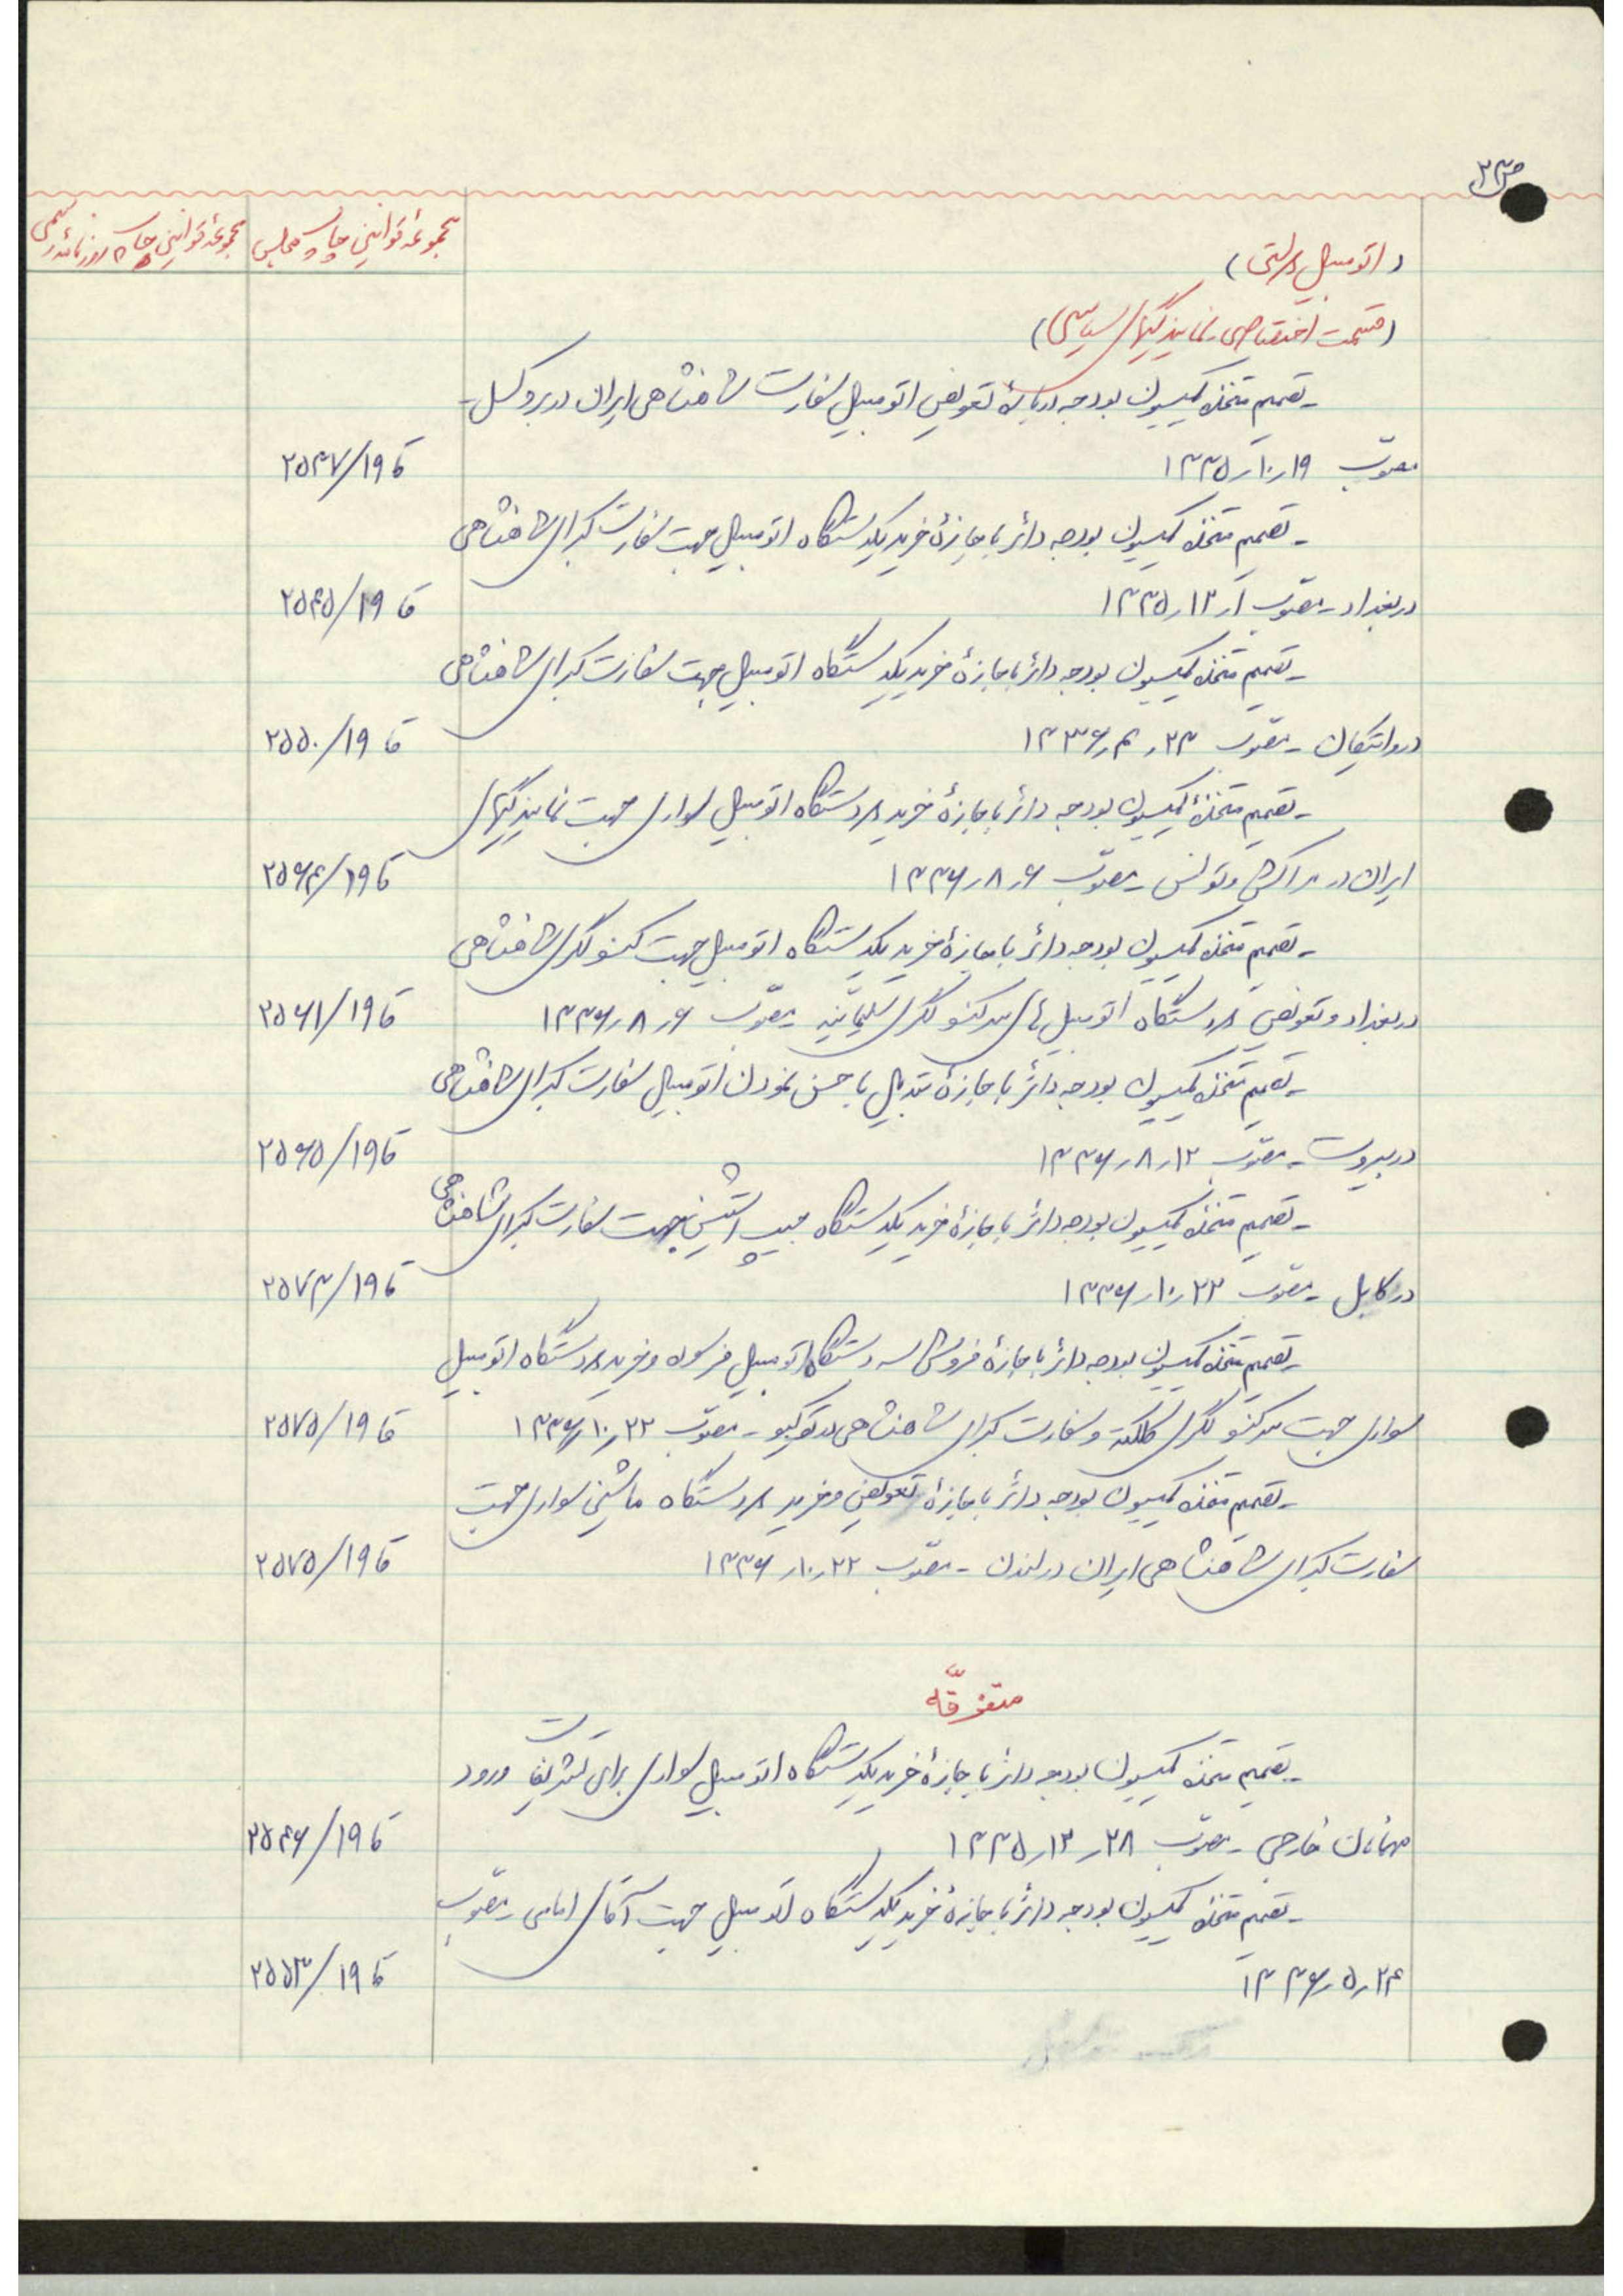 ص ۳
مجموعهٔ قوانین چاپ مجلس
مجموعهٔ قوانین چاپ روزنامهٔ رسمی
(اتومبیل دولتی)
(قسمت اختصاصی نمایندگیهای سیاسی)
- تصمیم متخذه کمیسیون بودجه دربارهٔ تعویض اتومبیل سفارت شاهنشاهی ایران در بروکسل -
مصوّب ۱۹ر۱۰ر۱۳۳۵
ق۱۹/۲۵۳۷
- تصمیم متخذه کمیسیون بودجه دائر باجازهٔ خرید یکدستگاه اتومبیل جهت سفارت کبرای شاهنشاهی
در بغداد - مصوّب ۱ر۱۲ر۱۳۳۵
ق۱۹/۲۵۴۵
- تصمیم متخذه کمیسیون بودجه دائر باجازهٔ خرید یکدستگاه اتومبیل جهت سفارت کبرای شاهنشاهی
در واتیکان - مصوّب ۲۳ر۴ر۱۳۳۶
ق۱۹/۲۵۵۰
- تصمیم متخذهٔ کمیسیون بودجه دائر باجازهٔ خرید دو دستگاه اتومبیل سواری جهت نمایندگیهای
ایران در مراکش و تونس - مصوّب ۶ر۸ر۱۳۳۶
ق۱۹/۲۵۶۴
- تصمیم متخذه کمیسیون بودجه دائر باجازهٔ خرید یکدستگاه اتومبیل جهت کنسولگری شاهنشاهی
در بغداد و تعویض دو دستگاه اتومبیل های سر کنسولگری سلیمانیه - مصوّب ۶ر۸ر۱۳۳۶
ق۱۹/۲۵۶۱
- تصمیم متخذه کمیسیون بودجه دائر باجازهٔ تبدیل باحسن نمودن اتومبیل سفارت کبرای شاهنشاهی
در بیروت - مصوّب ۱۲ر۸ر۱۳۳۶
ق۱۹/۲۵۶۵
- تصمیم متخذه کمیسیون بودجه دائر باجازهٔ خرید یکدستگاه جیپ استیشن جهت سفارت کبرای شاهنشاهی
در کابل - مصوّب ۲۲ر۱۰ر۱۳۳۶
ق۱۹/۲۵۷۳
- تصمیم متخذه کمیسیون بودجه دائر باجازهٔ فروش سه دستگاه اتومبیل فرسوده و خرید دو دستگاه اتومبیل
سواری جهت سر کنسولگری کلکته و سفارت کبرای شاهنشاهی در توکیو - مصوّب ۲۲ر۱۰ر۱۳۳۶
ق۱۹/۲۵۷۵
- تصمیم متخذه کمیسیون بودجه دائر باجازهٔ تعویض و خرید دو دستگاه ماشین سواری جهت
سفارت کبرای شاهنشاهی ایران در لندن - مصوّب ۲۲ر۱۰ر۱۳۳۶
ق۱۹/۲۵۷۵
متفرقّه
- تصمیم متخذه کمیسیون بودجه دائر باجازهٔ خرید یکدستگاه اتومبیل سواری برای تشریفات ورود
مهمانان خارجی - مصوّب ۲۸ر۱۲ر۱۳۳۵
ق۱۹/۲۵۴۶
- تصمیم متخذه کمیسیون بودجه دائر باجازهٔ خرید یکدستگاه اتومبیل جهت آقای امامی - مصوّب
۲۴ر۵ر۱۳۳۶
ق۱۹/۲۵۵۳